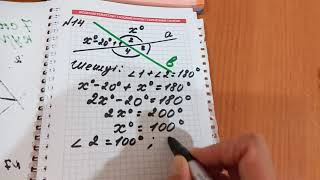 №14
x°
a
x°-20° 1 2
4
в
Шешуі: ∠1+∠2=180°
x°-20°+x°=180°
2x°-20°=180°
2x°=200°
x°=100°
∠2=100°;